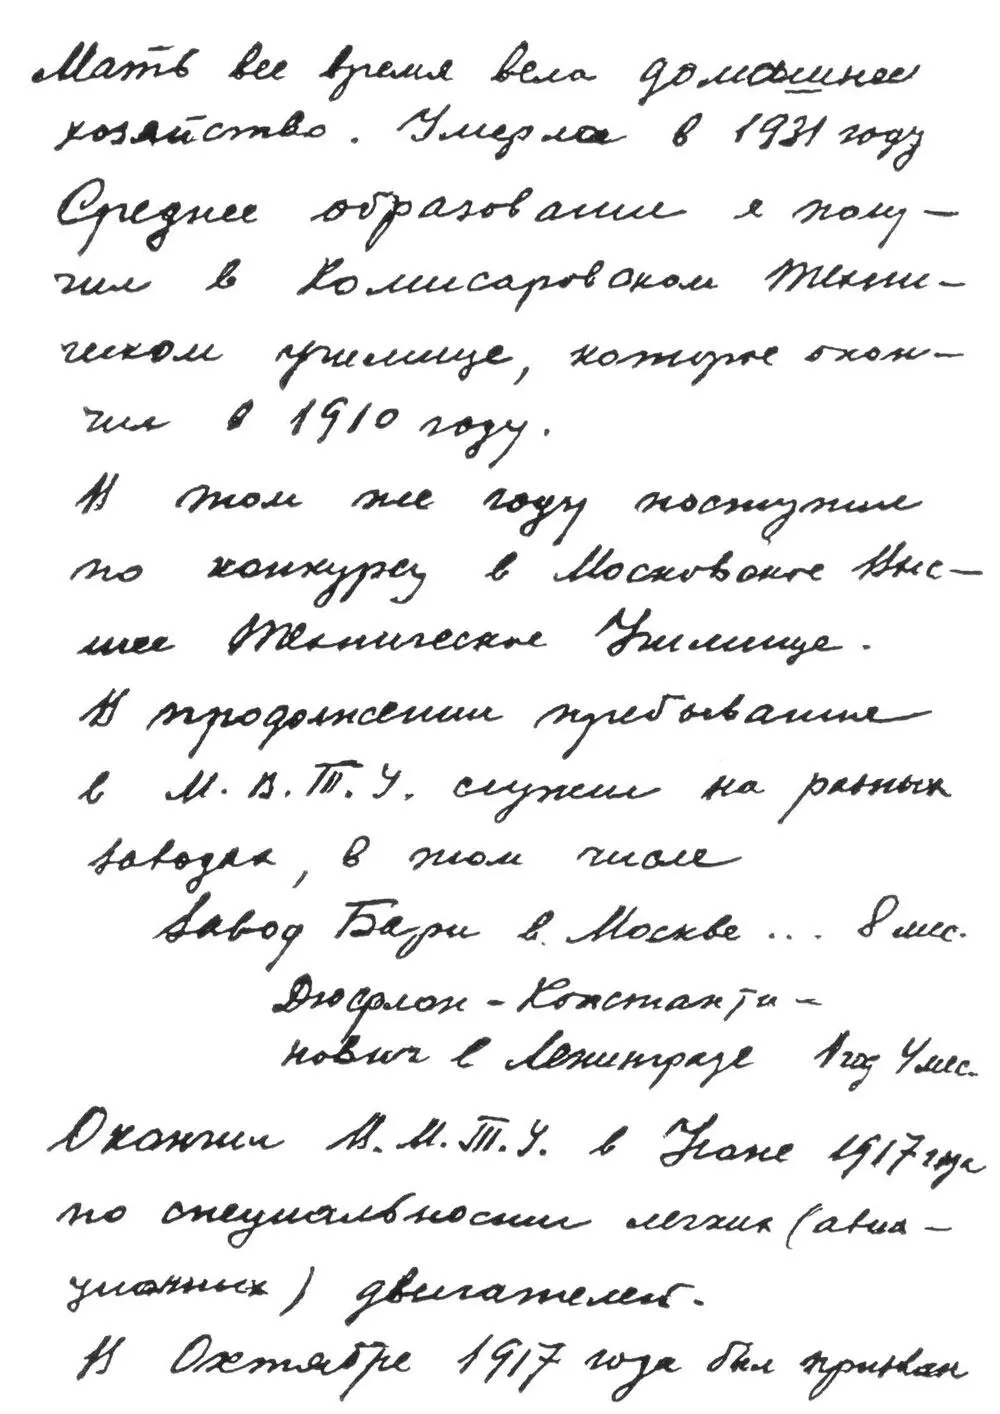 Мать все время вела домашнее
хозяйство. Умерла в 1931 году
Среднее образование я полу-
чил в Комисаровском Техни-
ческом училище, которое окон-
чил в 1910 году.
В том же году поступил
по конкурсу в Московское Выс-
шее Техническое Училище.
В продолжении пребывания
в М.В.Т.У. служил на разных
заводах, в том числе
Завод Бари в Москве ... 8 мес.
Дюфлон-Константи-
нович в Ленинграде 1 год 4 мес.
Окончил В.М.Т.У. в Июне 1917 года
по специальности легких (авиа-
ционных) двигателей.
В Октябре 1917 года был призван